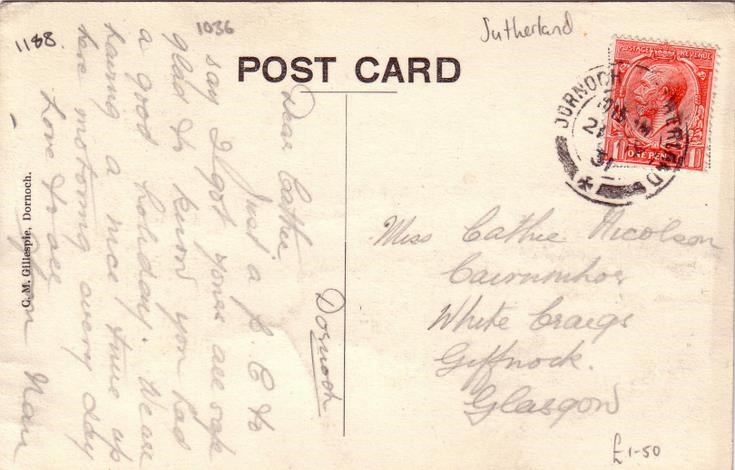 1188.
1036
Sutherland
POST CARD
POSTAGE REVENUE
1 ONE PENNY 1
DORNOCH
SUTHERLAND
21
31
Dornoch
Dear Cathie.
Just a P.C to
say I got yours all safe
glad to know you had
a good holiday. We are
having a nice time up
here motoring every day
Love to all
from Nan
Miss Cathie Nicolson
White Craigs
Giffnock.
Glasgow
G. M. Gillespie, Dornoch.
£1-50